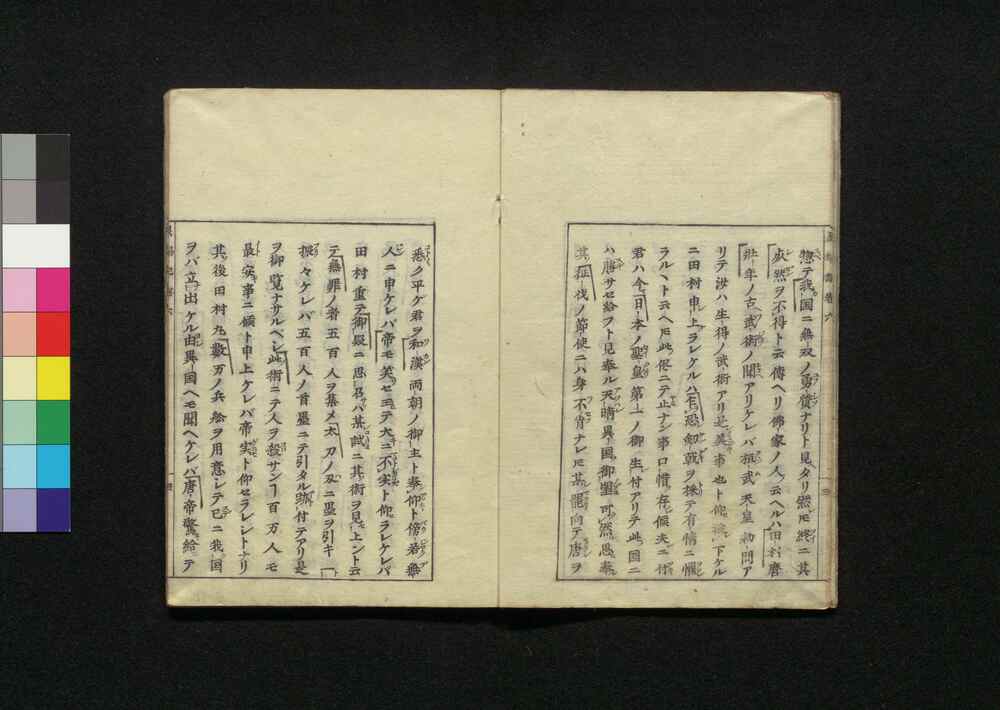 惣テ我国ニ無双ノ勇賢ナリト見タリ然𪜈終ニ其
成然ヲ不得ト云傳ヘリ佛家ノ人云ヘルハ田村麿
壯年ノ古武術ノ聞アリケレバ桓武天皇勅問ア
リテ汝ハ生得ノ武術アリ是異事也ト仰 下ケル
ニ田村申上ラレケルハ乍恐剱戟ヲ抹テ有情ニ懼
ラルヽト云ヘ𪜈此侭ニテ止ナン事口惜存候夫ニ付
君ハ今日本ノ聖皇第一ノ御生付アリテ此国ニ
ハ 唐サセ給フト見奉ル天晴異国御望可然愚奉
其征伐ノ節使ニハ身不肖ナレ𪜈某龍向テ唐ヲ
悉ク平ゲ君ヲ和漢両朝ノ御主ト奉仰ト傍若無
人ニ申ケレバ帝モ笑セ玉テ大ニ不実ト仰ラレケレバ
田村重テ御疑ニ思召バ某試ニ其術ヲ見上ント云
テ無罪ノ者五百人ヲ集メ太刀ノ刄ニ墨ヲ引キ
振々ケレバ五百人ノ首墨ニテ引タル跡付テアリ是
ヲ御覧ナサルベシ此術ニテ人ヲ殺サンヿ百万人モ
最安事ニ候ト申上ケレバ帝実ト仰セラレシトナリ
其後田村丸數万ノ兵舩ヲ用意シテ已ニ我国
ヲバ立出ケル由異国ヘモ聞ヘケレバ唐帝驚給テ